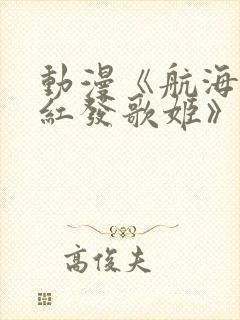 動漫《航海
紅發歌姬》
高俊夫